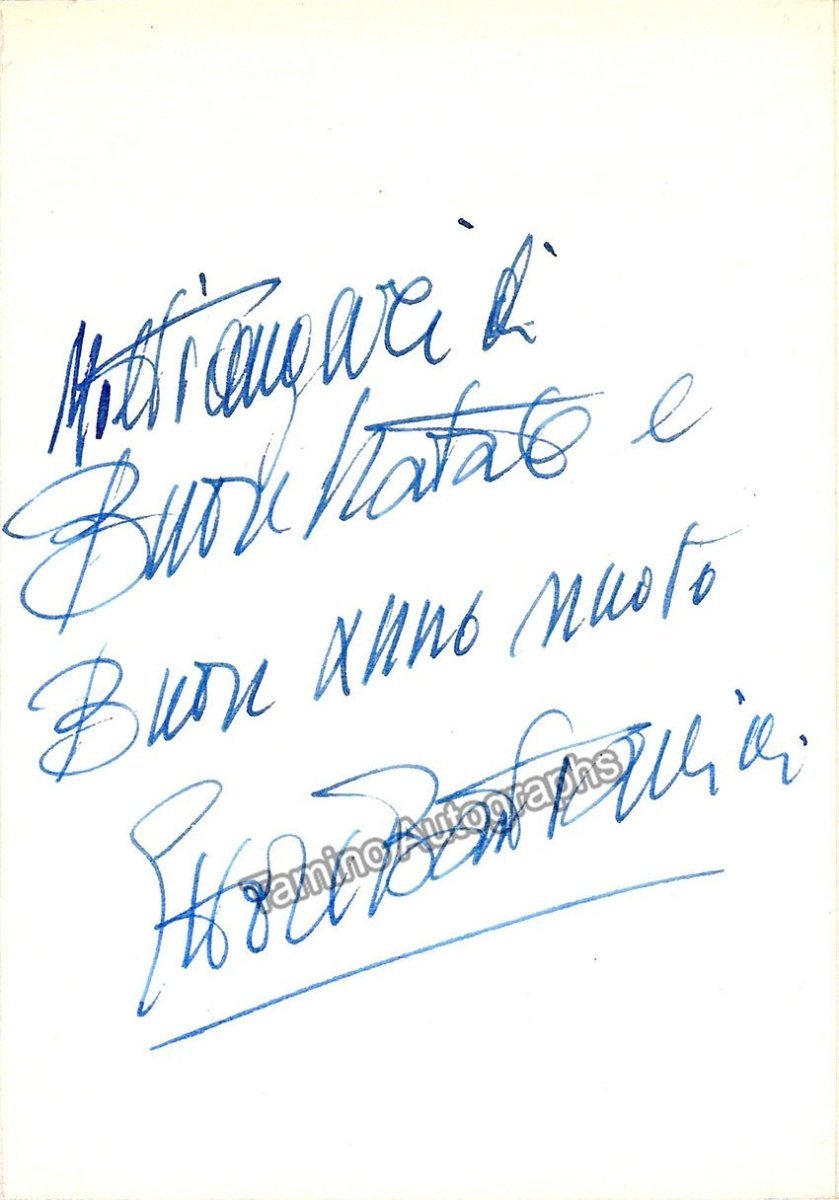 Molti auguri di
Buon Natale e
Buon anno nuovo
Ettore Bastianini
Tamino Autographs